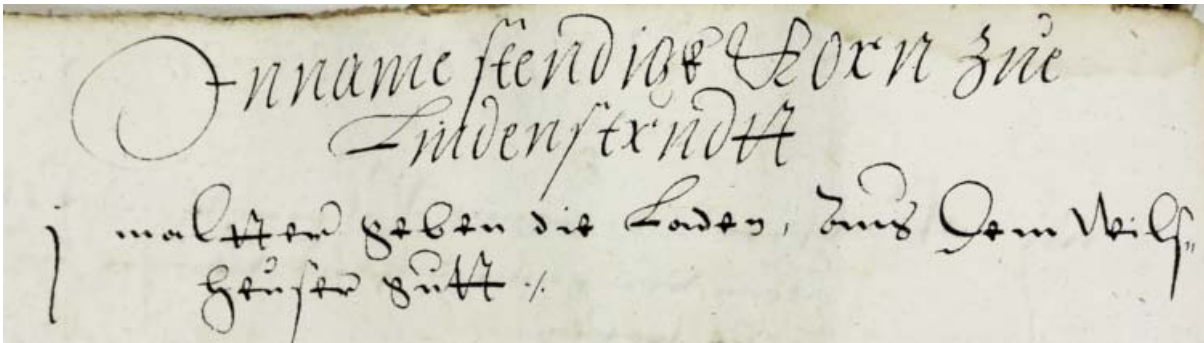 Inname stendigk Korn zue
Lindenstrudtt
j maltter geben die Loden, aus dem Weils=
heuser gutt ./.